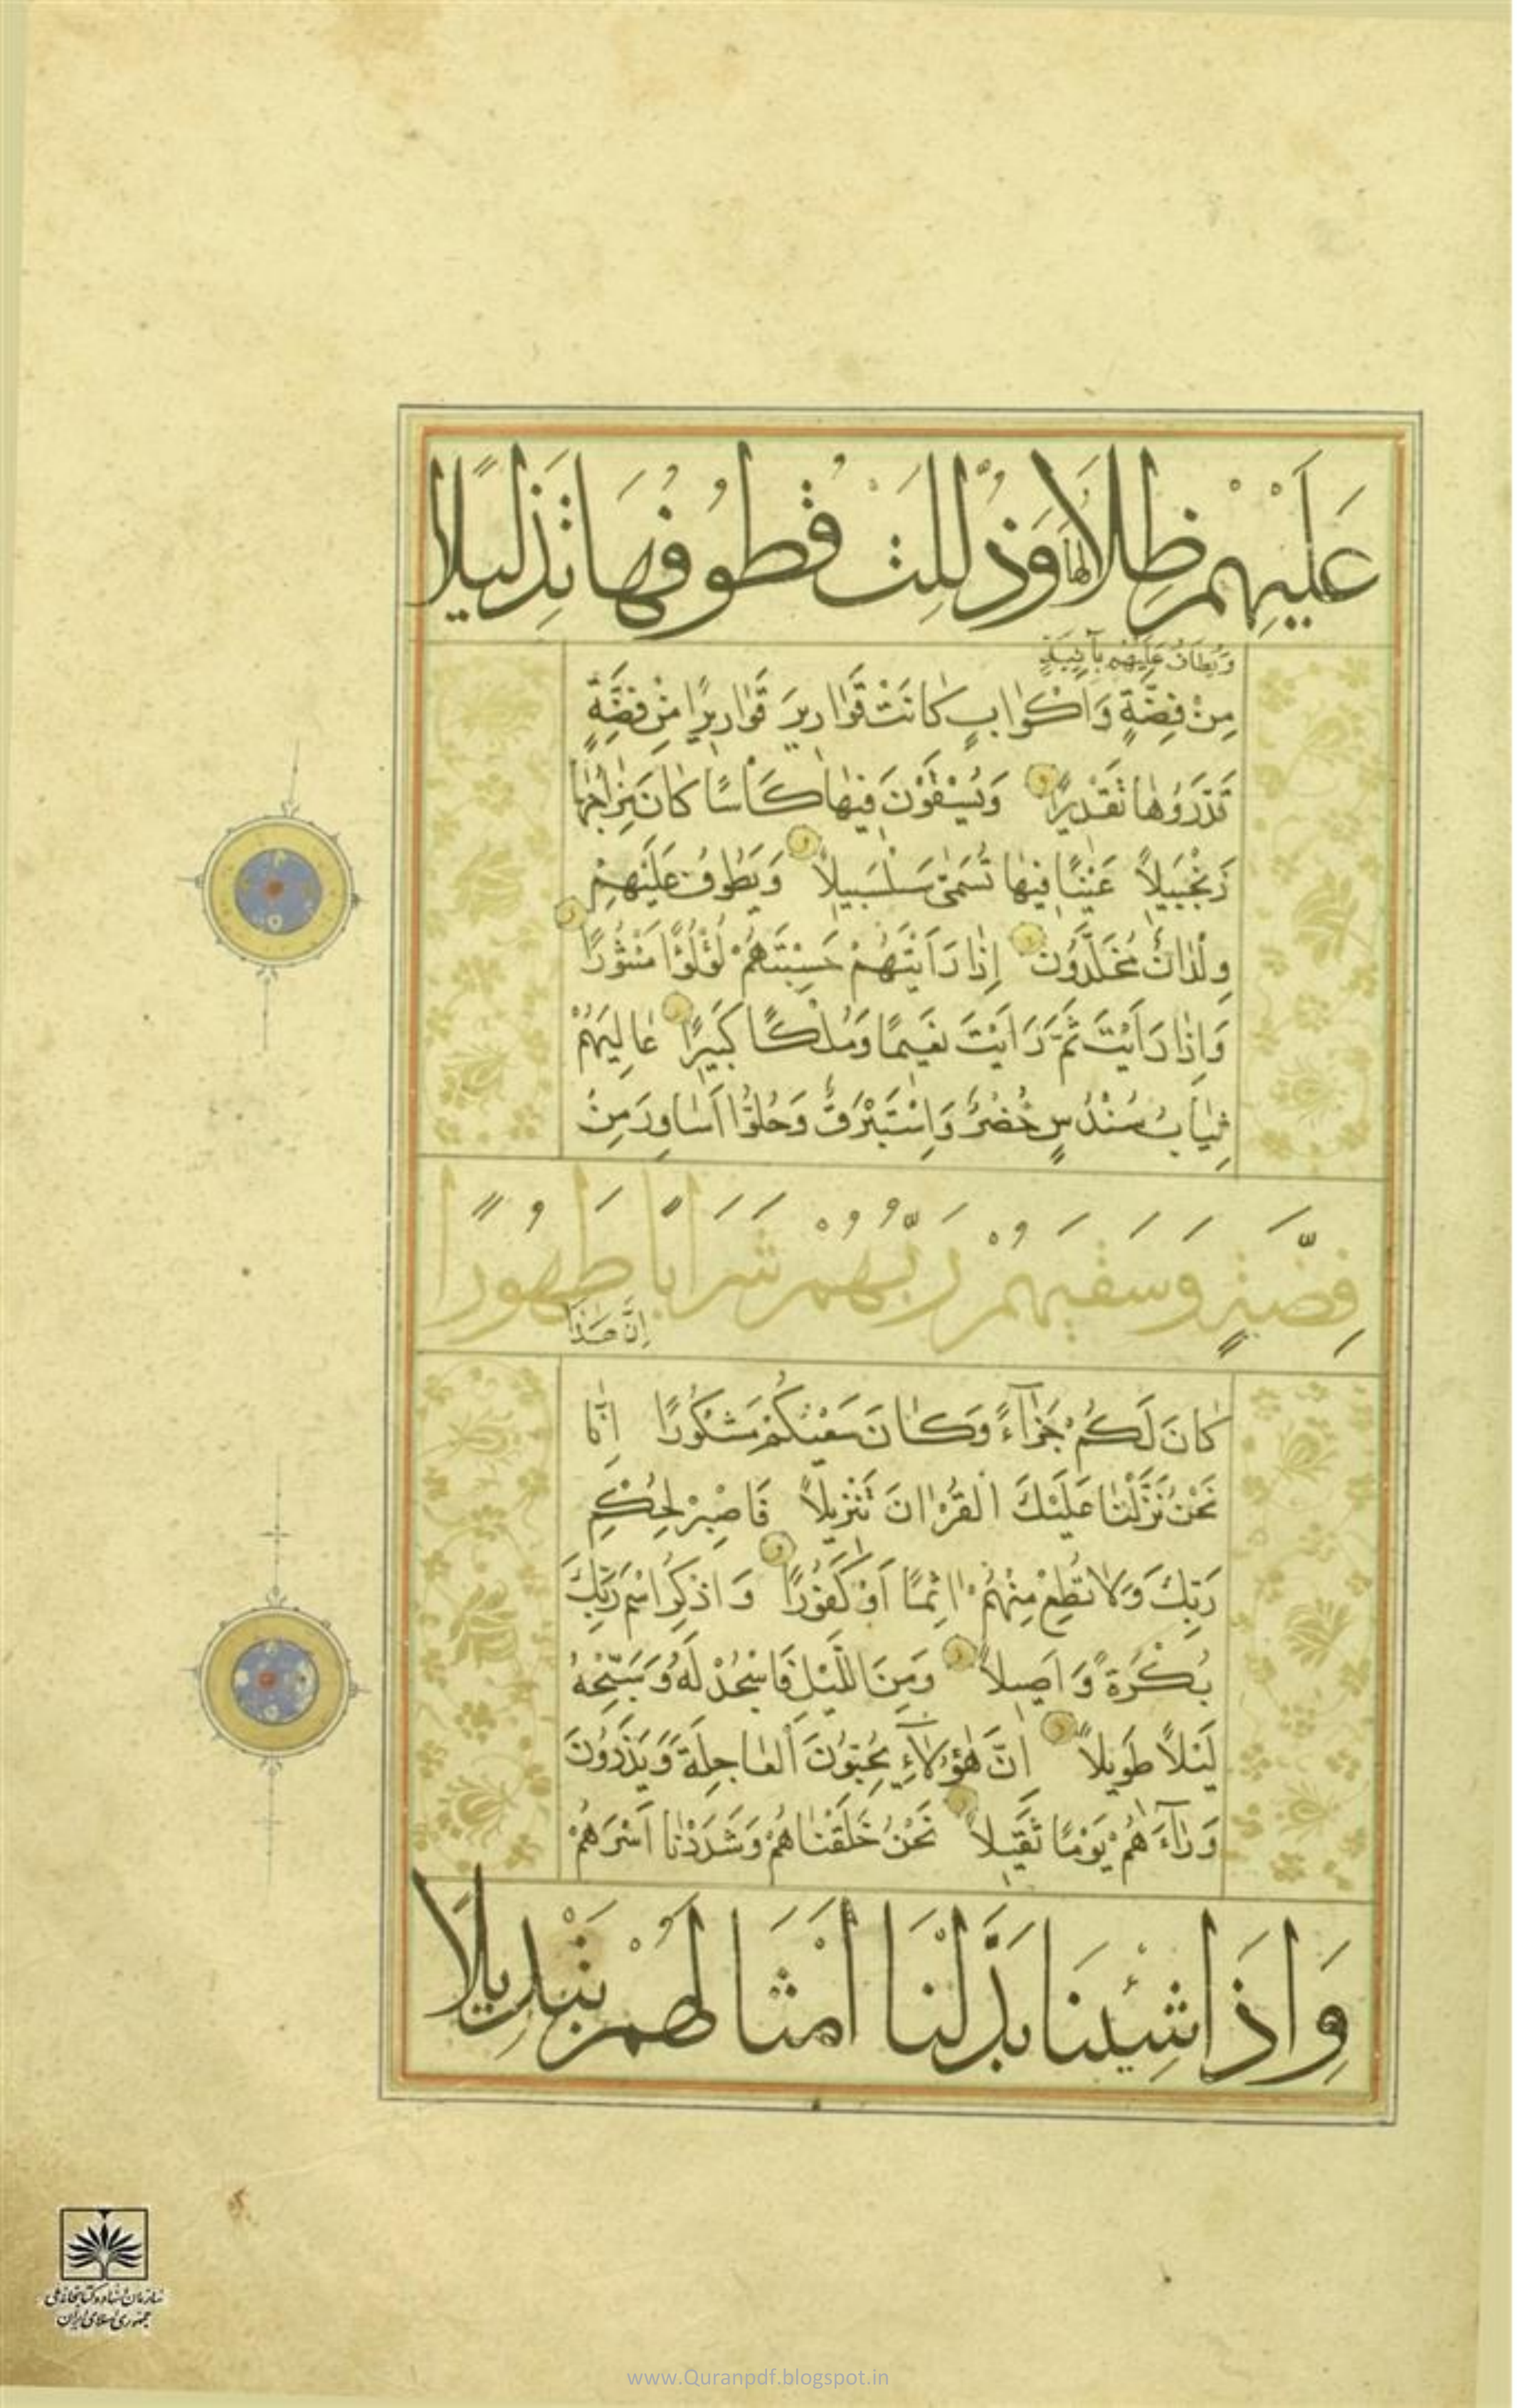 عَلَيْهِمْ ظِلَالُهَا وَذُلِّلَتْ قُطُوفُهَا تَذْلِيلًا
وَيُطَافُ عَلَيْهِمْ بِآنِيَةٍ
مِنْ فِضَّةٍ وَاَكْوٰابٍ كٰانَتْ قَوٰارِيرَ قَوٰارِيرًا مِنْ فِضَّةٍ
قَدَّرَوُهٰا تَقْدِيرًا وَيُسْقَوْنَ فِيهٰا كَاْسًا كٰانَ مِزٰاجُهٰا
زَنْجَبِيلاً عَيْنًا فِيهٰا تُسَمّٰى سَلْسَبِيلاً وَيَطُوفُ عَلَيْهِمْ
وِلْدٰانٌ مُخَلَّدُونَ اِذٰا رَاَيْتَهُمْ حَسِبْتَهُمْ لُؤْلُؤًا مَنْثُورًا
وَاِذٰا رَاَيْتَ ثَمَّ رَاَيْتَ نَعِيمًا وَمُلْكًا كَبِيرًا عٰالِيَهُمْ
ثِيٰابُ سُنْدُسٍ خُضْرٌ وَاِسْتَبْرَقٌ وَحُلُّوا اَسٰاوِرَ مِنْ
فِضَّةٍ وَسَقَيٰهُمْ رَبُّهُمْ شَرَابًا طَهُورًا
اِنَّ هٰذَا
كٰانَ لَكُمْ جَزٰآءً وَكٰانَ سَعْيُكُمْ مَشْكُورًا اِنّٰا
نَحْنُ نَزَّلْنٰا عَلَيْكَ الْقُرْاٰنَ تَنْزِيلاً فَاصْبِرْ لِحُكْمِ
رَبِّكَ وَلاٰ تُطِعْ مِنْهُمْ اٰثِمًا اَوْ كَفُورًا وَاذْكُرِ اسْمَ رَبِّكَ
بُكْرَةً وَاَصِيلاً وَمِنَ اللَّيْلِ فَاسْجُدْ لَهُ وَسَبِّحْهُ
لَيْلاً طَوِيلاً اِنَّ هٰؤُلاٰۤءِ يُحِبُّونَ الْعٰاجِلَةَ وَيَذَرُونَ
وَرٰآءَهُمْ يَوْمًا ثَقِيلاً نَحْنُ خَلَقْنٰاهُمْ وَشَدَدْنٰا اَسْرَهُمْ
وَاِذَا شِئْنَا بَدَّلْنَا اَمْثَالَهُمْ تَبْدِيلًا
سازمان اسناد و کتابخانه ملی
جمهوری اسلامی ایران
www.Quranpdf.blogspot.in